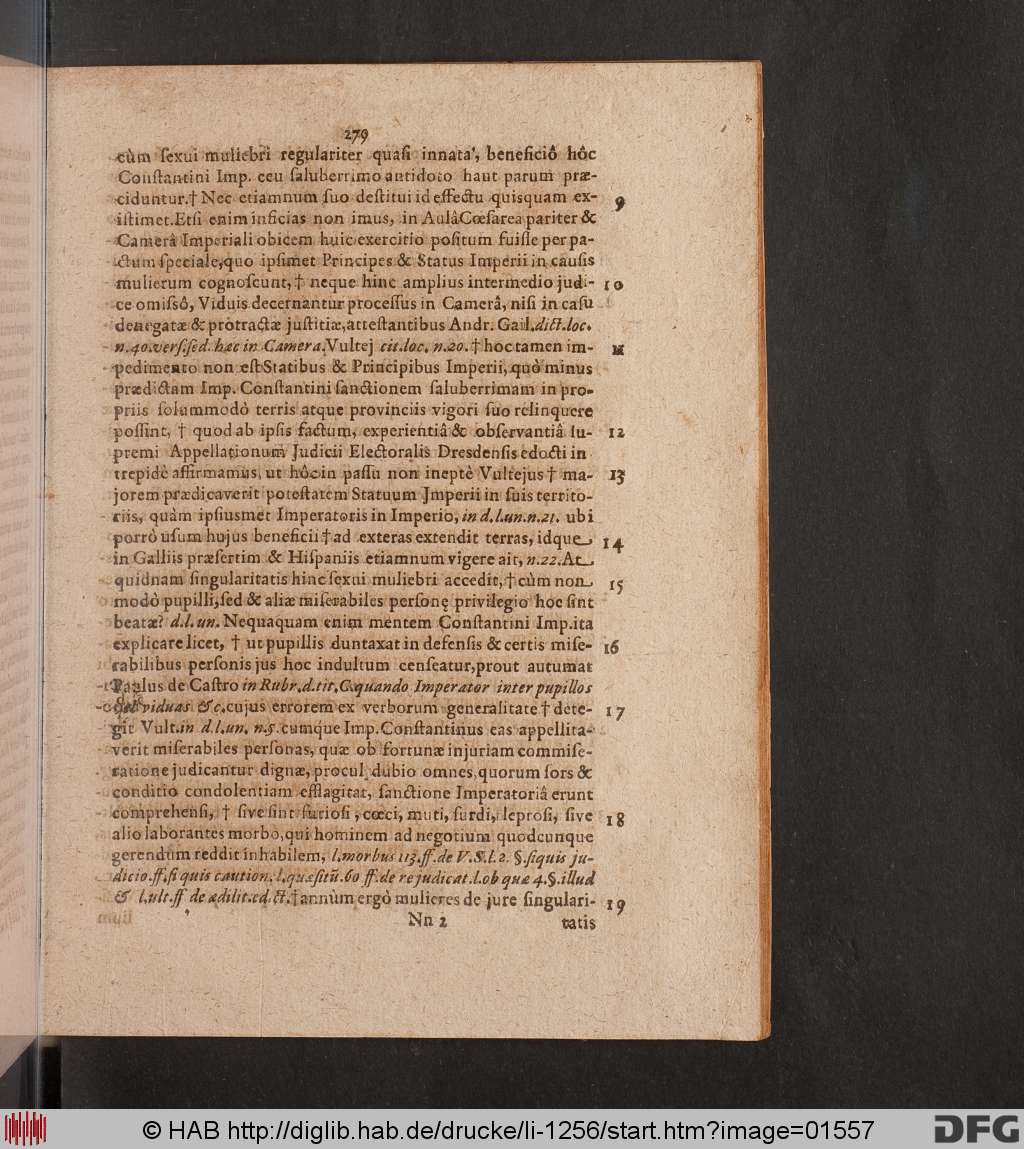 279
cùm ſexui muliebri regulariter quaſi innata', beneficiô hôc
Conſtantini Imp. ceu ſaluberrimo antidoto haut parum præ-
ciduntur.† Nec etiamnum ſuo deſtitui id effectu quisquam ex- 9
iſtimet. Etſi enim inficias non imus, in AulâCœſarea pariter &
Camerâ Imperiali obicem huic exercitio poſitum fuiſſe per pa-
ctum ſpeciale, quo ipſimet Principes & Status Imperii in cauſis
mulierum cognoſcunt, † neque hinc amplius intermedio judi- 10
ce omiſſô, Viduis decernantur proceſſus in Camerâ, niſi in caſu
denegatæ & protractæ juſtitiæ, atteſtantibus Andr. Gail. dict. loc.
n. 40. verſ. ſed. hæc in Camera. Vultej cit. loc. n. 20. † hoc tamen im- 11
pedimento non eſt Statibus & Principibus Imperii, quò minus
prædictam Imp. Conſtantini ſanctionem ſaluberrimam in pro-
priis ſolummodò terris atque provinciis vigori ſuo relinquere
poſſint, † quod ab ipſis factum, experientiâ & obſervantiâ ſu- 12
premi Appellationum Judicii Electoralis Dresdenſis edocti in
trepidè affirmamus, ut hôc in paſſu non ineptè Vultejus † ma- 13
jorem prædicaverit poteſtatem Statuum Jmperii in ſuis territo-
riis, quàm ipſiusmet Imperatoris in Imperio, in d. l. un. n. 21. ubi
porrò uſum hujus beneficii † ad exteras extendit terras, idque 14
in Galliis præſertim & Hiſpaniis etiamnum vigere ait, n. 22. At
quidnam ſingularitatis hinc ſexui muliebri accedit, † cùm non 15
modò pupilli, ſed & aliæ miſerabiles perſonę privilegio hoc ſint
beatæ? d. l. un. Nequaquam enim mentem Conſtantini Imp. ita
explicare licet, † ut pupillis duntaxat in defenſis & certis miſe- 16
rabilibus perſonis jus hoc indultum cenſeatur, prout autumat
Paulus de Caſtro in Rubr. d. tit. C. quando Imperator inter pupillos
vel viduas &c. cujus errorem ex verborum generalitate † dete- 17
git Vult. in d. l. un. n. 5. cumque Imp. Conſtantinus eas appellita-
verit miſerabiles perſonas, quæ ob fortunæ injuriam commiſe-
ratione judicantur dignæ, procul dubio omnes, quorum ſors &
conditio condolentiam efflagitat, ſanctione Imperatoriâ erunt
comprehenſi, † ſive ſint furioſi, cœci, muti, ſurdi, leproſi, ſive 18
alio laborantes morbo, qui hominem ad negotium quodcunque
gerendum reddit inhabilem, l. morbus 113. ff. de V. S. l. 2. §. ſiquis ju-
dicio. ff. ſi quis caution. l. quæſitū. 60 ff. de re judicat. l. ob quæ 4. §. illud
& l. ult. ff de ædilit. ed. ct. † annùm ergò mulieres de jure ſingulari- 19
Nn 2 tatis
© HAB http://diglib.hab.de/drucke/li-1256/start.htm?image=01557
DFG